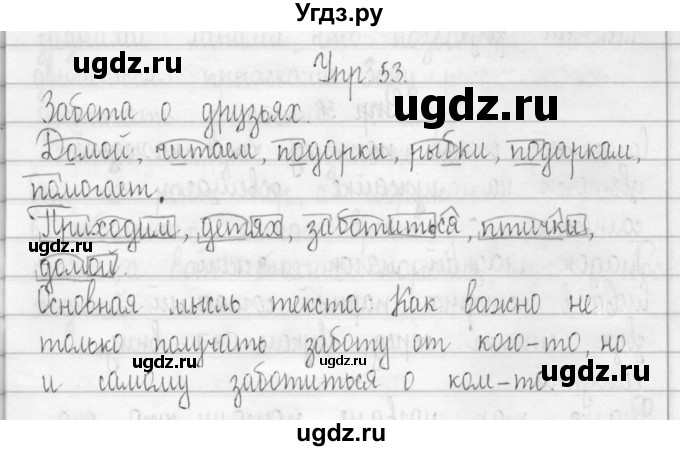 Угдз.ру
ugdz.ru
Упр 53.
ugdz.ru
Забота о друзьях.
Домой, читаем, подарки, рыбки, подаркам,
помогает.
Приходим, детях, заботиться, птички,
ugdz.ru
ugdz.ru
домой
Основная мысль текста: Как важно не
только получать заботу от кого-то, но
ugdz.ru
ugdz.ru
и самому заботиться о ком-то.
ugdz.ru